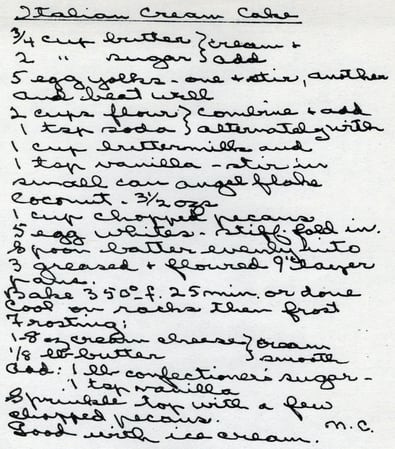 Italian Cream Cake
3/4 cup butter } cream +
2 " sugar } add
5 egg yolks - one + stir, another
and beat well
2 cups flour } combine + add
1 tsp soda } alternately with
1 cup buttermilk and
1 tsp vanilla - stir in
small can angel flake
coconut - 3 1/2 ozs
1 cup chopped pecans
5 egg whites - stiff. fold in.
Spoon batter evenly into
3 greased + floured 9" layer
pans.
Bake 350° f. 25 min. or done
Cool on racks then frost
Frosting:
1-8 oz cream cheese } cream
1/8 lb butter } smooth
Add: 1 lb confectioner's sugar -
1 tsp vanilla
Sprinkle top with a few
chopped pecans.
N.C.
Good with ice cream.